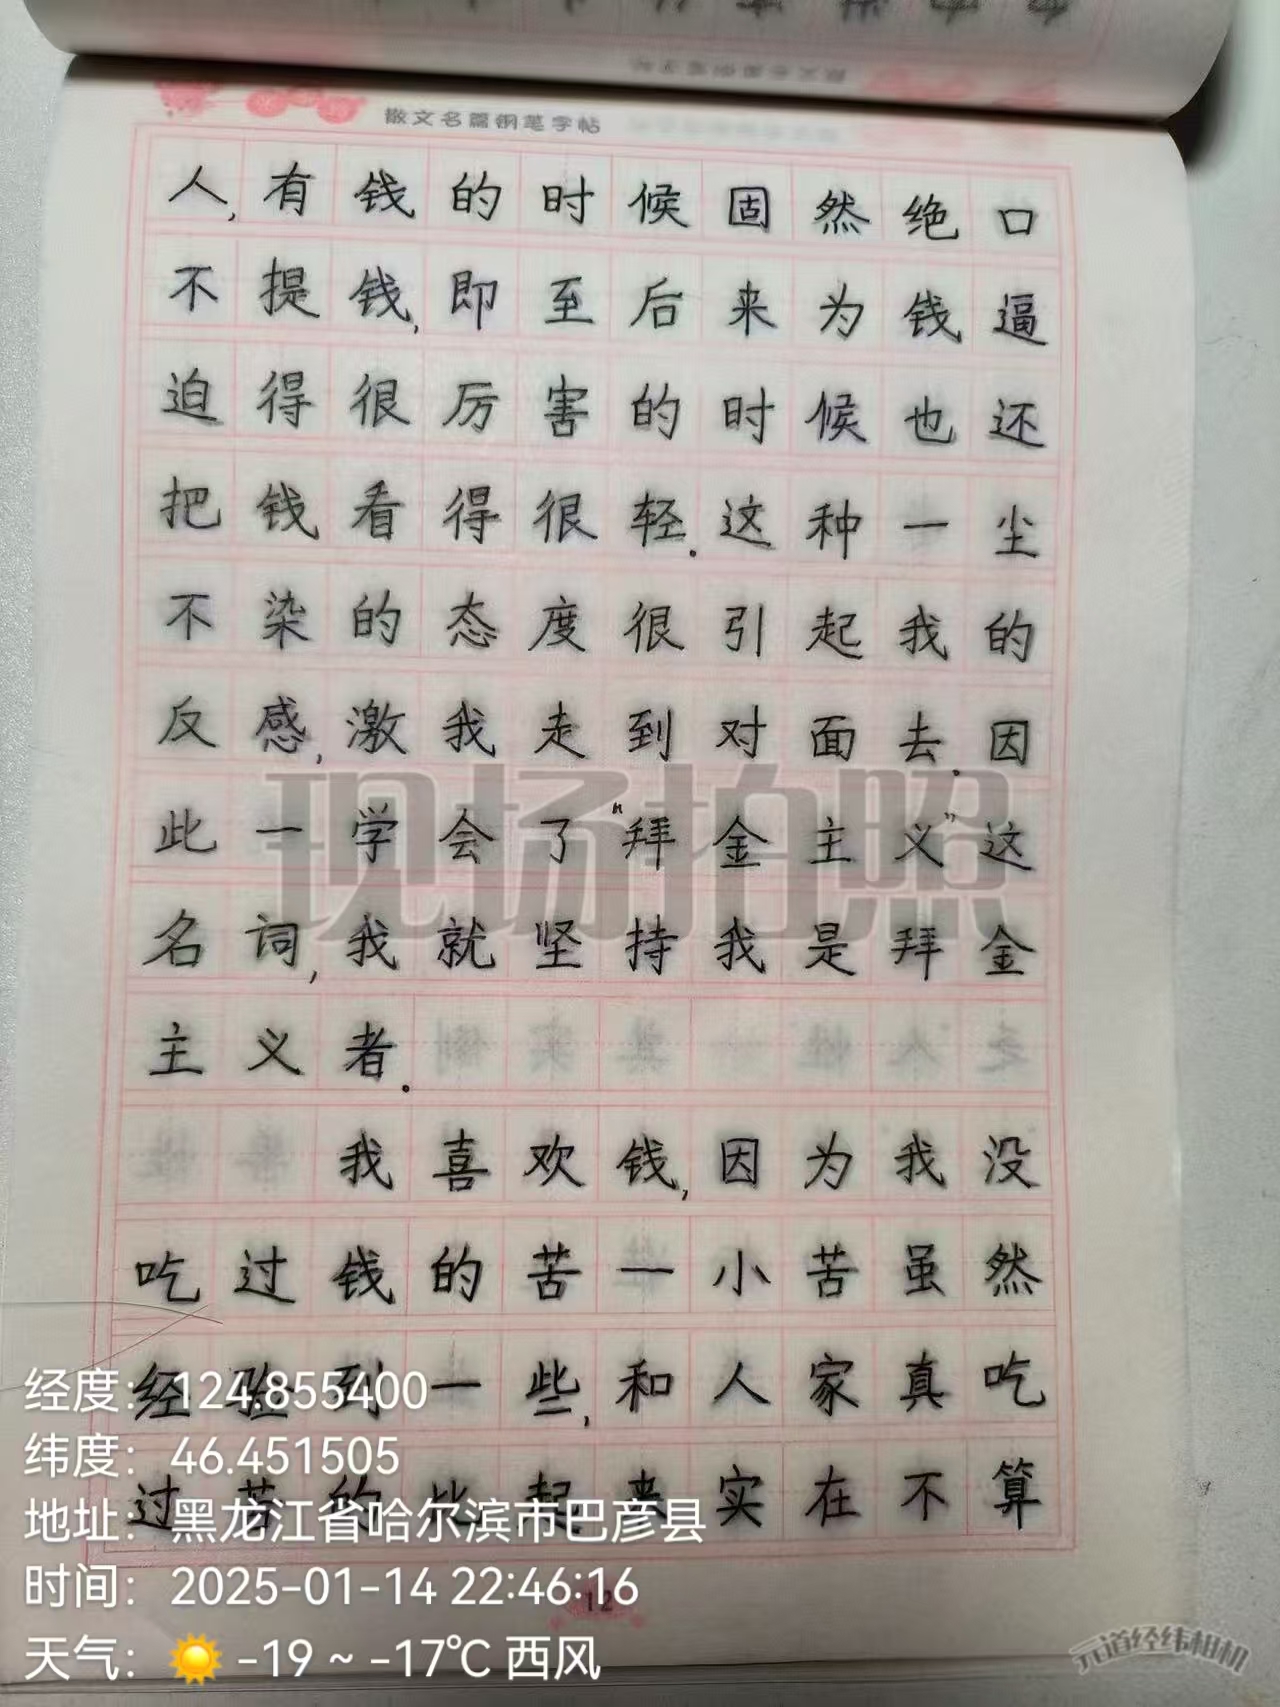 散文名篇钢笔字帖
人,有钱的时候固然绝口
不提钱,即至后来为钱逼
迫得很厉害的时候也还
把钱看得很轻.这种一尘
不染的态度很引起我的
反感,激我走到对面去.因
此一学会了"拜金主义"这
名词,我就坚持我是拜金
主义者.
我喜欢钱,因为我没
吃过钱的苦一小苦虽然
经验到一些,和人家真吃
过苦的比起来实在不算
现场拍照
经度: 124.855400
纬度: 46.451505
地址: 黑龙江省哈尔滨市巴彦县
时间: 2025-01-14 22:46:16
天气: ☀️ -19 ~ -17℃ 西风
12
元道经纬相机